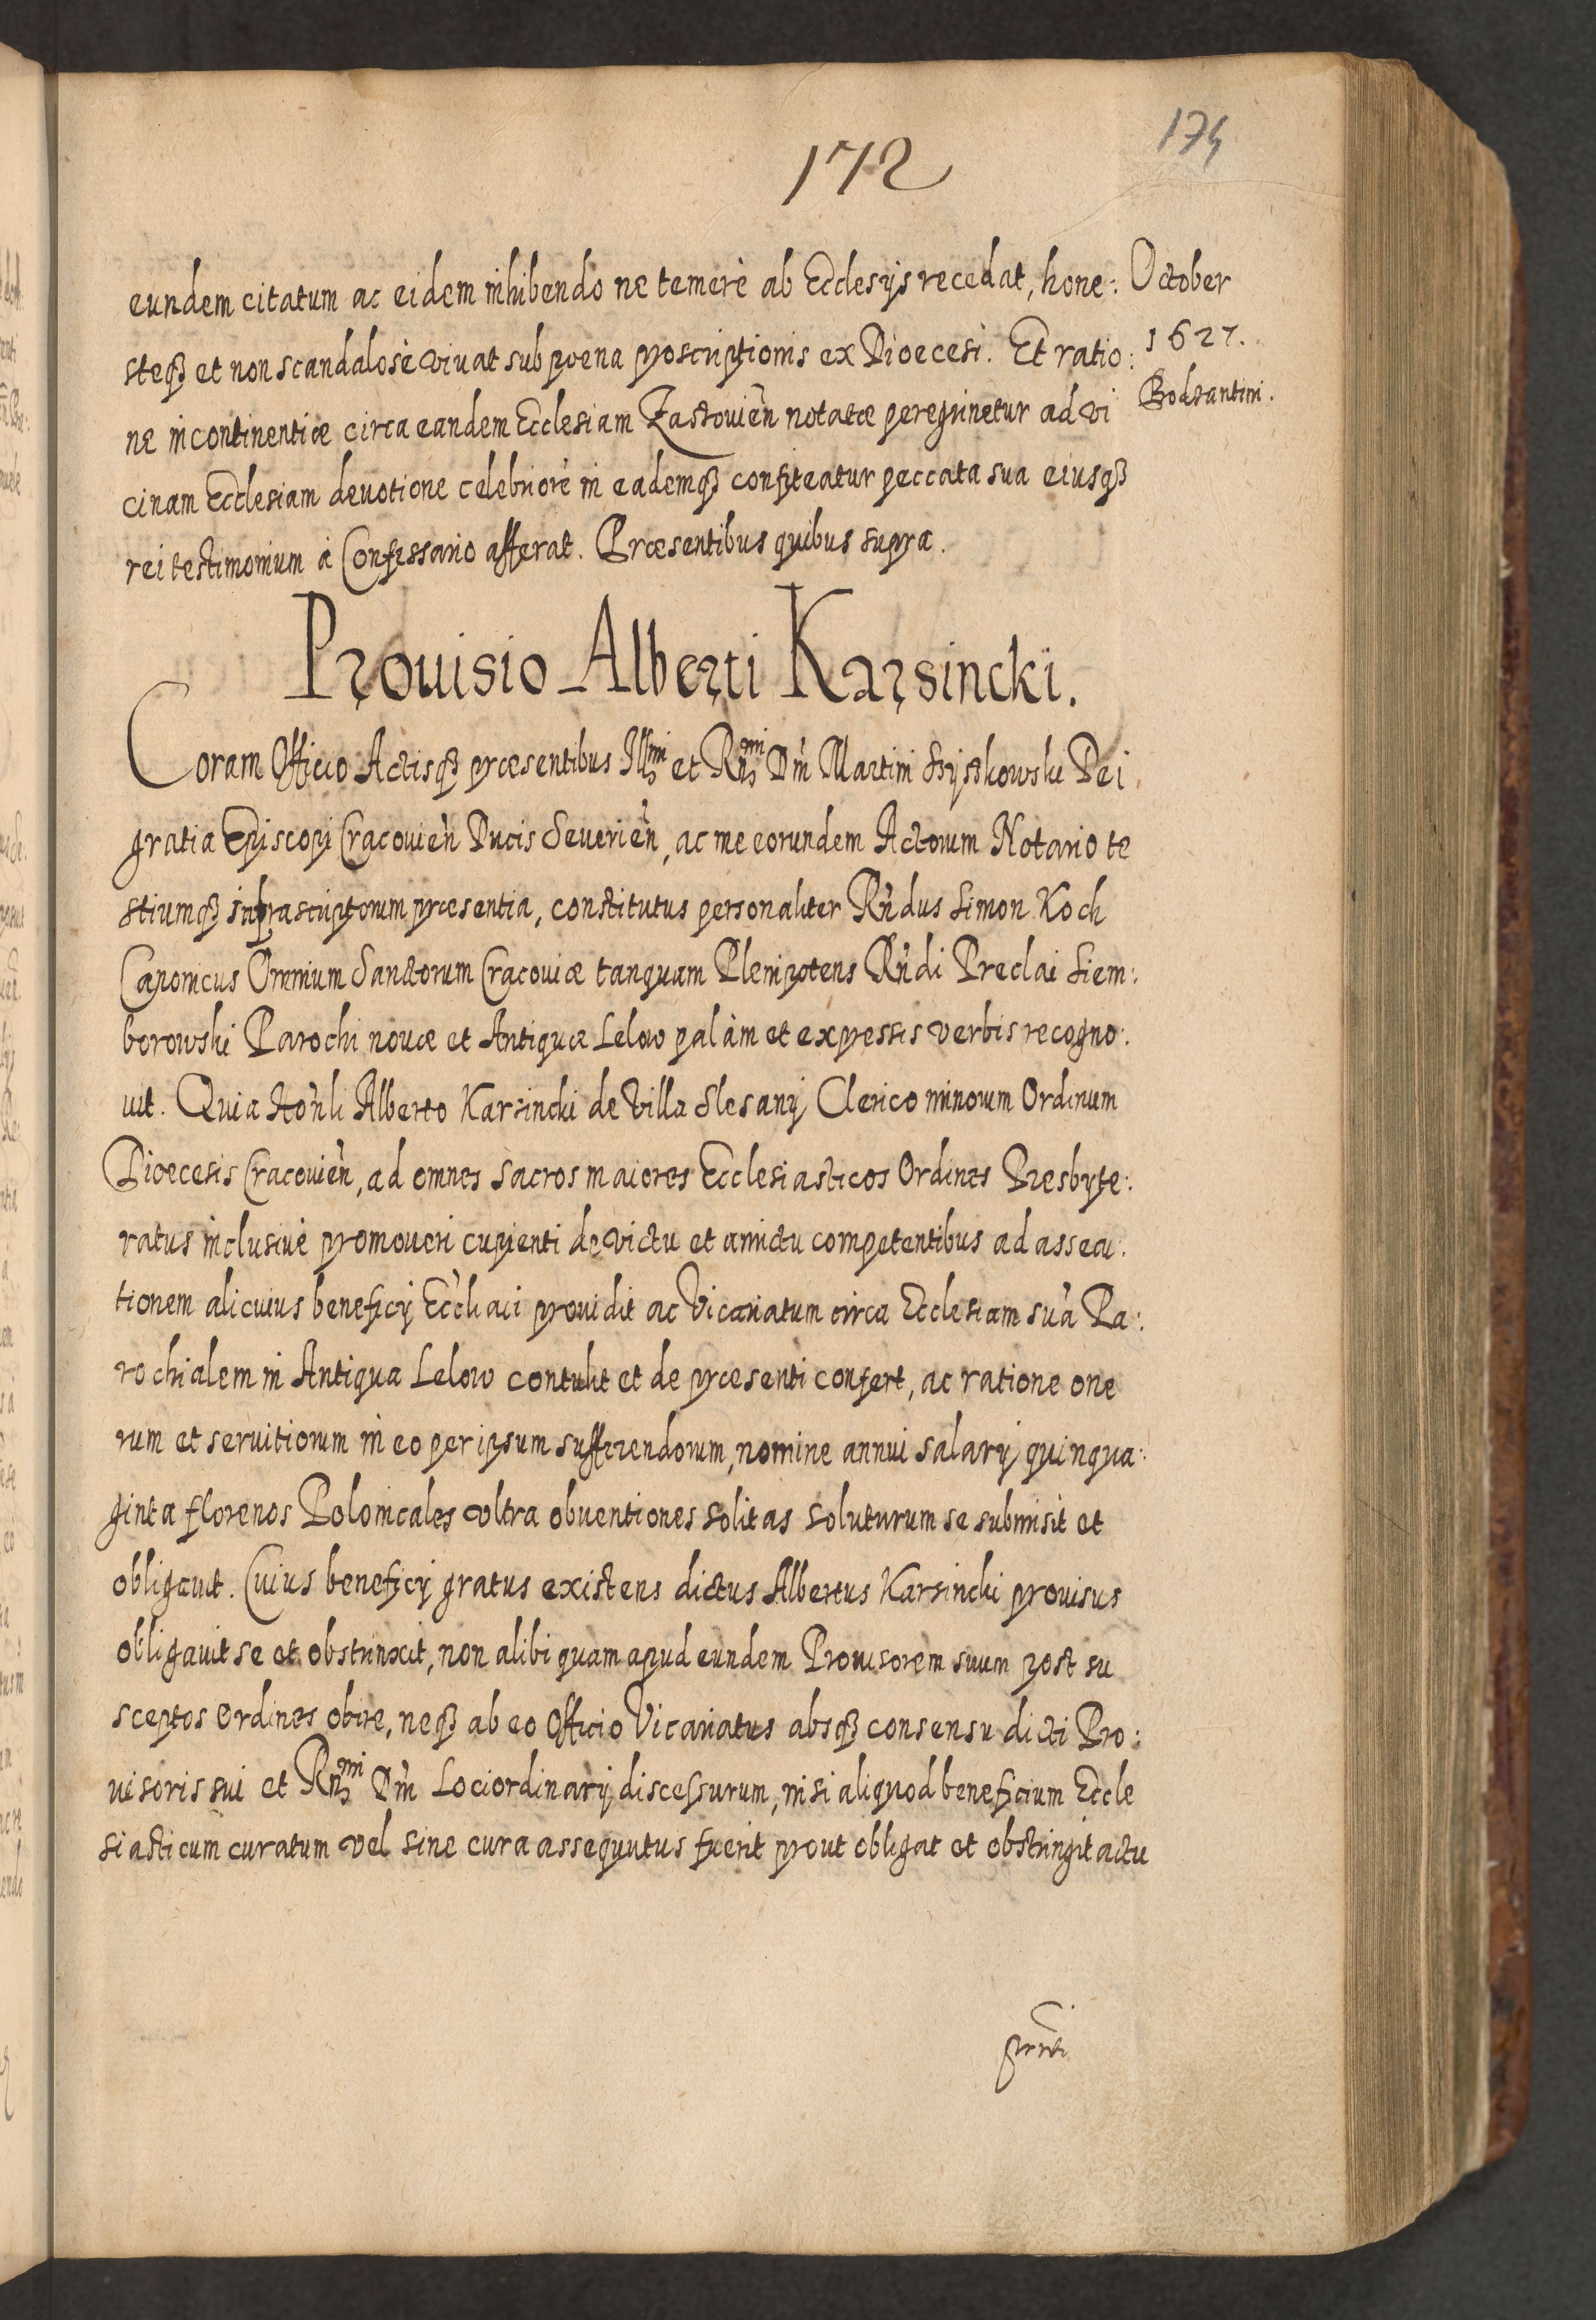 172
174
October
1627.
Bodzantini.
eundem citatum ac eidem inhibendo ne temerè ab Ecclesijs recedat, hone:
steq₃ et non scandalosè vivat sub poena proscriptionis ex Dioecesi. Et ratio:
ne incontinentiæ circa eandem Ecclesiam Zastovien̄ notatæ peregrinetur ad vi
cinam Ecclesiam devotione celebriorē in eademq₃ confiteatur peccata sua eiusq₃
rei testimonium à Confessario afferat. Præsentibus quibus supra.
Provisio Alberti Karsincki.
Coram Officio Actisq₃ præsentibus Illmi et Rmi Dn̄i Martini Szyszkowski Dei
gratia Episcopi Cracovien̄ Ducis Severien̄, ac me eorundem Actorum Notario te
stiumq₃ infrascriptorum præsentia, constitutus personaliter Rn̄dus Simon Koch
Canonicus Omnium Sanctorum Cracoviæ tanquam Plenipotens Rn̄di Preclai Siem:
borowski Parochi novæ et Antiquæ Lelow palàm et expressis verbis recogno:
vit. Quia Hon̄li Alberto Karsincki de Villa Slesanÿ Clerico minorum Ordinum
Dioecesis Cracovien̄, ad omnes sacros maiores Ecclesiasticos Ordines Presbyte:
ratus inclusivè promoveri cupienti de victu et amictu competentibus ad assecu:
tionem alicuius beneficij Eccl̄iaci providit ac Vicariatum circa Ecclesiam suā Pa:
rochialem in Antiqua Lelow contulit et de præsenti confert, ac ratione one
rum et servitiorum in eo per ipsum sufferendorum, nomine annui salarij quinqua:
ginta florenos Polonicales ultra obventiones solitas soluturum se submisit et
obligavit. Cuius beneficij gratus existens dictus Albertus Karsincki provisus
obligavit se et obstrinxit, non alibi quam apud eundem Provisorem suum post su
sceptos Ordines obire, neq₃ ab eo Officio Vicariatus absq₃ consensu dicti Pro:
visoris sui et Rmi Dn̄i Loci ordinarij discessurum, nisi aliquod beneficium Eccle
siasticum curatum vel sine cura assequutus fuerit prout obligat et obstringit actu